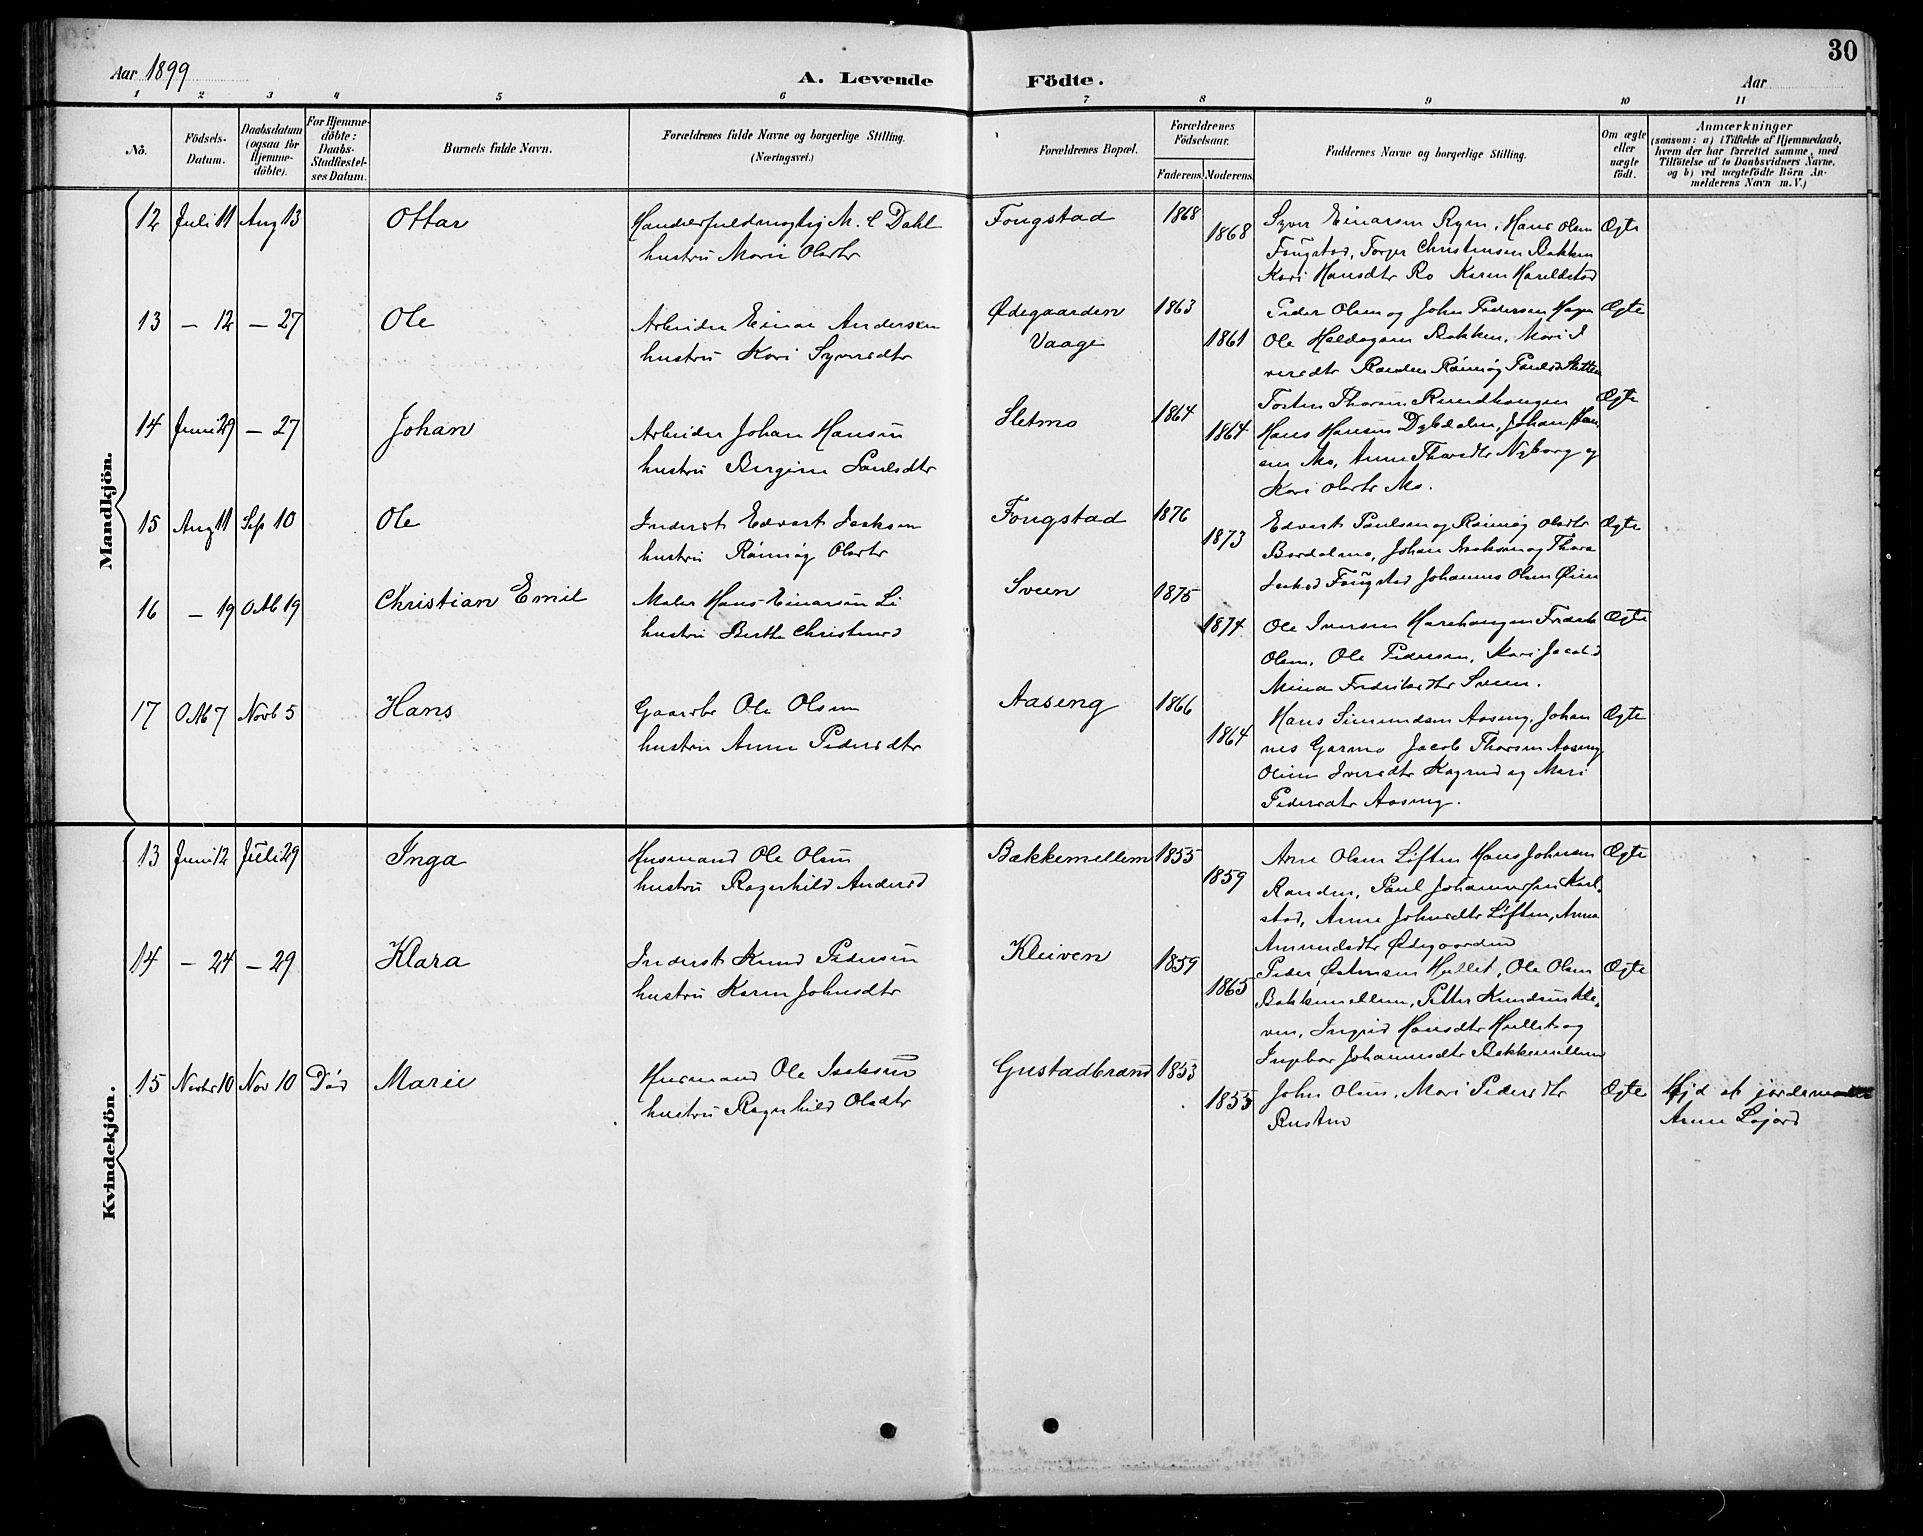 30
Aar 1899
A. Levende
Födte.
Aar
1 2 3 4 5 6 7 8 9 10 11
Nö.
Födsels-
Datum.
Daabsdatum
(ogsaa for
Hjemme-
döbte).
For Hjemme-
döbte:
Daabs-
Stadfæstel-
ses Datum.
Barnets fulde Navn.
Forældrenes fulde Navne og borgerlige Stilling.
(Næringsvei.)
Forældrenes Bopæl.
Forældrenes
Födselsaar.
Faderens. Moderens.
Faddernes Navne og borgerlige Stilling.
Om ægte
eller
uægte
födt.
Anmærkninger
(saasom: a) i Tilfælde af Hjemmedaab,
hvem der har forrettet samme, med
Tilföielse af to Daabsvidners Navne,
og b) ved uægtefödte Börn An-
melderens Navn m. V.)
Mandkjön.
12 Juli 11 Aug 13 Ottar
M. C Dahl
hustru Marie Olsdtr
Fougstad 1868
1868
Syver Einarsen Rym, Hans Olsen
Fougstad, Torger Christensen Bakken
Kari Hansdtr Ro Karen
Ægte
13 — 12 — 27 Ole
Arbeider Einar Andersen
hustru Kari Syversdtr
Ødegaarden
Vaage
1863
1861
Peder Olsen og John Pedersen Hagen
Ole Bakken, Mari I
versdtr Randen Rønnøg
Ægte
14 Juni 29 — 27 Johan
Arbeider Johan Hansen
hustru Bergine Paulsdtr
Sletmo 1864
1864
Tosten Thorsen Rundhaugen
Hans Hansen Dybdalen, Johan Han
sen Mo, Anne Thorsdtr Nyborg og
Kari Olsdtr Mo.
Ægte
15 Aug 11 Sep 10 Ole
Inderst Edvart Isaksen
hustru Rønnøg Olsdtr
Fougstad 1876
1873
Edvart Paulsen og Rønnøg Olsdtr
Bardalmo, Johan Isaksen og Thora
Isaksd Fougstad Johannes Olsen Øien
Ægte
16 — 19 Oktb 19 Christian Emil
Maler Hans Einarsen Li
hustru Berthe Christensd
Sveen 1875
1874
Ole Iversen Harehaugen Fredrik
Olsen, Ole Pedersen, Kari Jacobsd
Mina Fredriksdtr Sveen.
Ægte
17 Oktb 7 Novb 5 Hans
Gaardbr Ole Olsen
hustru Anne Pedersdtr
Aaseng 1866
1864
Hans Simundsen Aaseng, Johan
nes Garmo Jacob Thorsen Aaseng
Oline Iversdtr Kogrud og Mari
Pedersdtr Aaseng.
Ægte
Kvindekjön.
13 Juni 12 Juli 29 Inga
Husmand Ole Olsen
hustru Ragnhild Andersd
Bakkemellem 1855
1859
Arne Olsen Løften Hans Johnsen
Randen, Paul Johannessen Karl-
stad, Anne Johnsdtr Løften, Anna
Amundsdtr Ødegaarden
Ægte
14 — 24 — 29 Klara
Inderst Knud Pedersen
hustru Karen Johnsdtr
Kleiven 1859
1865
Peder Østensen Hullet, Ole Olsen
Bakkemellem, Petter Knudsen Kle-
ven, Ingrid Hansdtr Hullet og
Ingebor Johannesdtr Bakkemellem
Ægte
15 Novbr 10 Nov 10 Død Marie
Husmand Ole Isaksen
hustru Ragnhild Olsdtr
Gustadbrænd 1853
1855
John Olsen, Mari Pedersdtr
Rusten
Ægte
Hjd af jordemoder
Anne Løjord